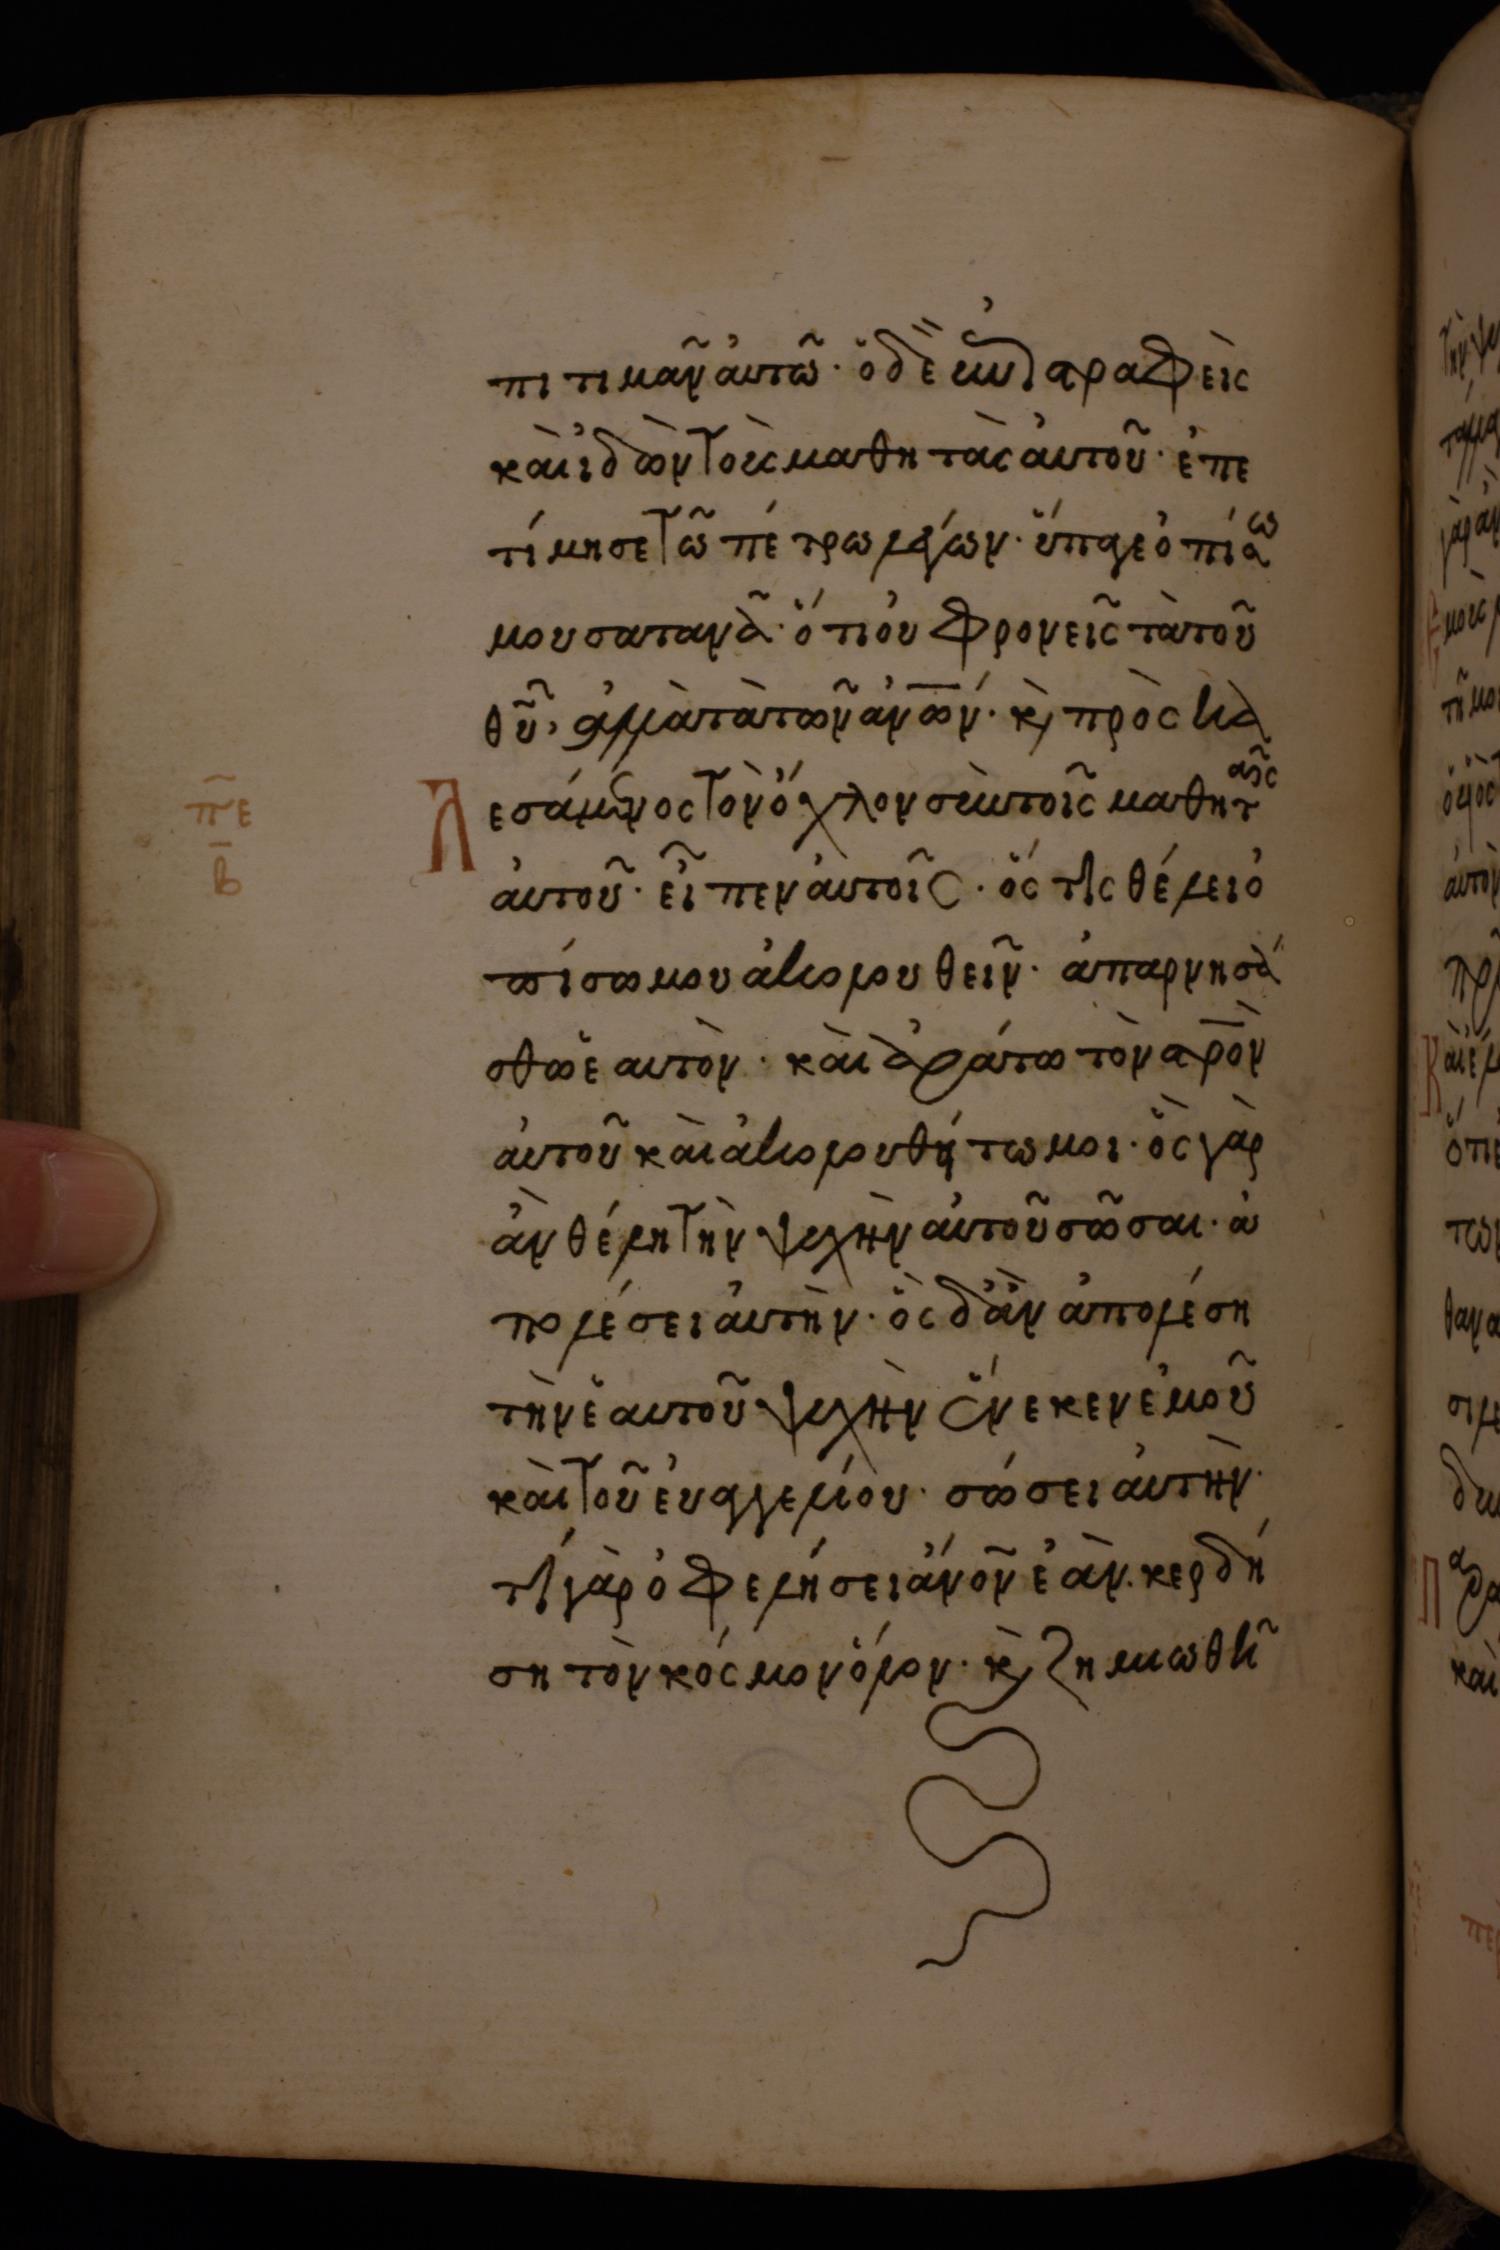 πιτιμᾶν αὐτῶ· ὁ δὲ ἐπιστραφεὶς
καὶ ἰδὼν τοὺς μαθητὰς αὐτοῦ· ἐπε
τίμησε τῶ πέτρω λέγων· ὕπαγε ὀπίσω
μου σατανᾶ· ὅτι οὐ φρονεῖς τὰ τοῦ
θῦ, ἀλλὰ τὰ τῶν ἀνῶν· κ̀ προσκα
π̅ε̅ λεσάμενος τὸν ὄχλον σὺν τοῖς μαθηταῖς
β̅ αὐτοῦ· εἶπεν αὐτοῖς· ὅστις θέλει ὀ
πίσω μου ἀκολουθεῖν· ἀπαρνησά
σθω ἑαυτὸν· καὶ ἀράτω τὸν σρὸν
αὐτοῦ καὶ ἀκολουθήτω μοι· ὃς γὰρ
ἂν θέλη τὴν ψυχὴν αὐτοῦ σῶσαι· ἀ
πολέσει αὐτὴν· ὃς δ' ἂν ἀπολέση
τὴν ἑαυτοῦ ψυχὴν ἕνεκεν ἐμοῦ
καὶ τοῦ εὐαγγελίου· σώσει αὐτὴν·
τί γὰρ ὀφελήσει ἄνον ἐὰν κερδή
ση τὸν κόσμον ὅλον· κ̀ ζημιωθῆ